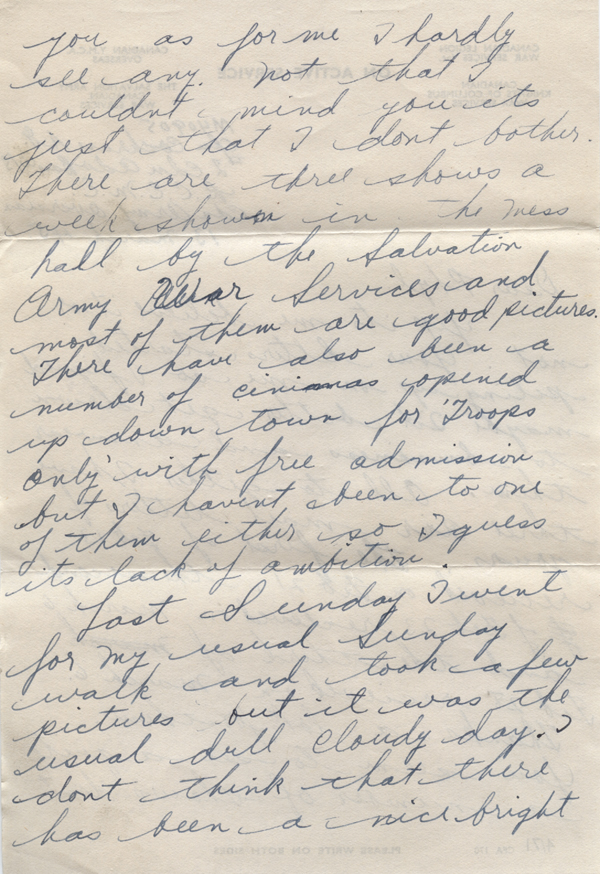 you as for me I hardly
see any. not that I
couldnt mind you its
just that I dont bother.
There are three shows a
week shown in the mess
hall by the Salvation
Army War Services and
most of them are good pictures.
There have also been a
number of cinimas opened
up down town for 'Troops
only' with free admission
but I havent been to one
of them either so I guess
its lack of ambition.
Last Sunday I went
for my usual Sunday
walk and took a few
pictures but it was the
usual dull cloudy day. I
dont think that there
has been a nice bright
PLEASE WRITE ON BOTH SIDES